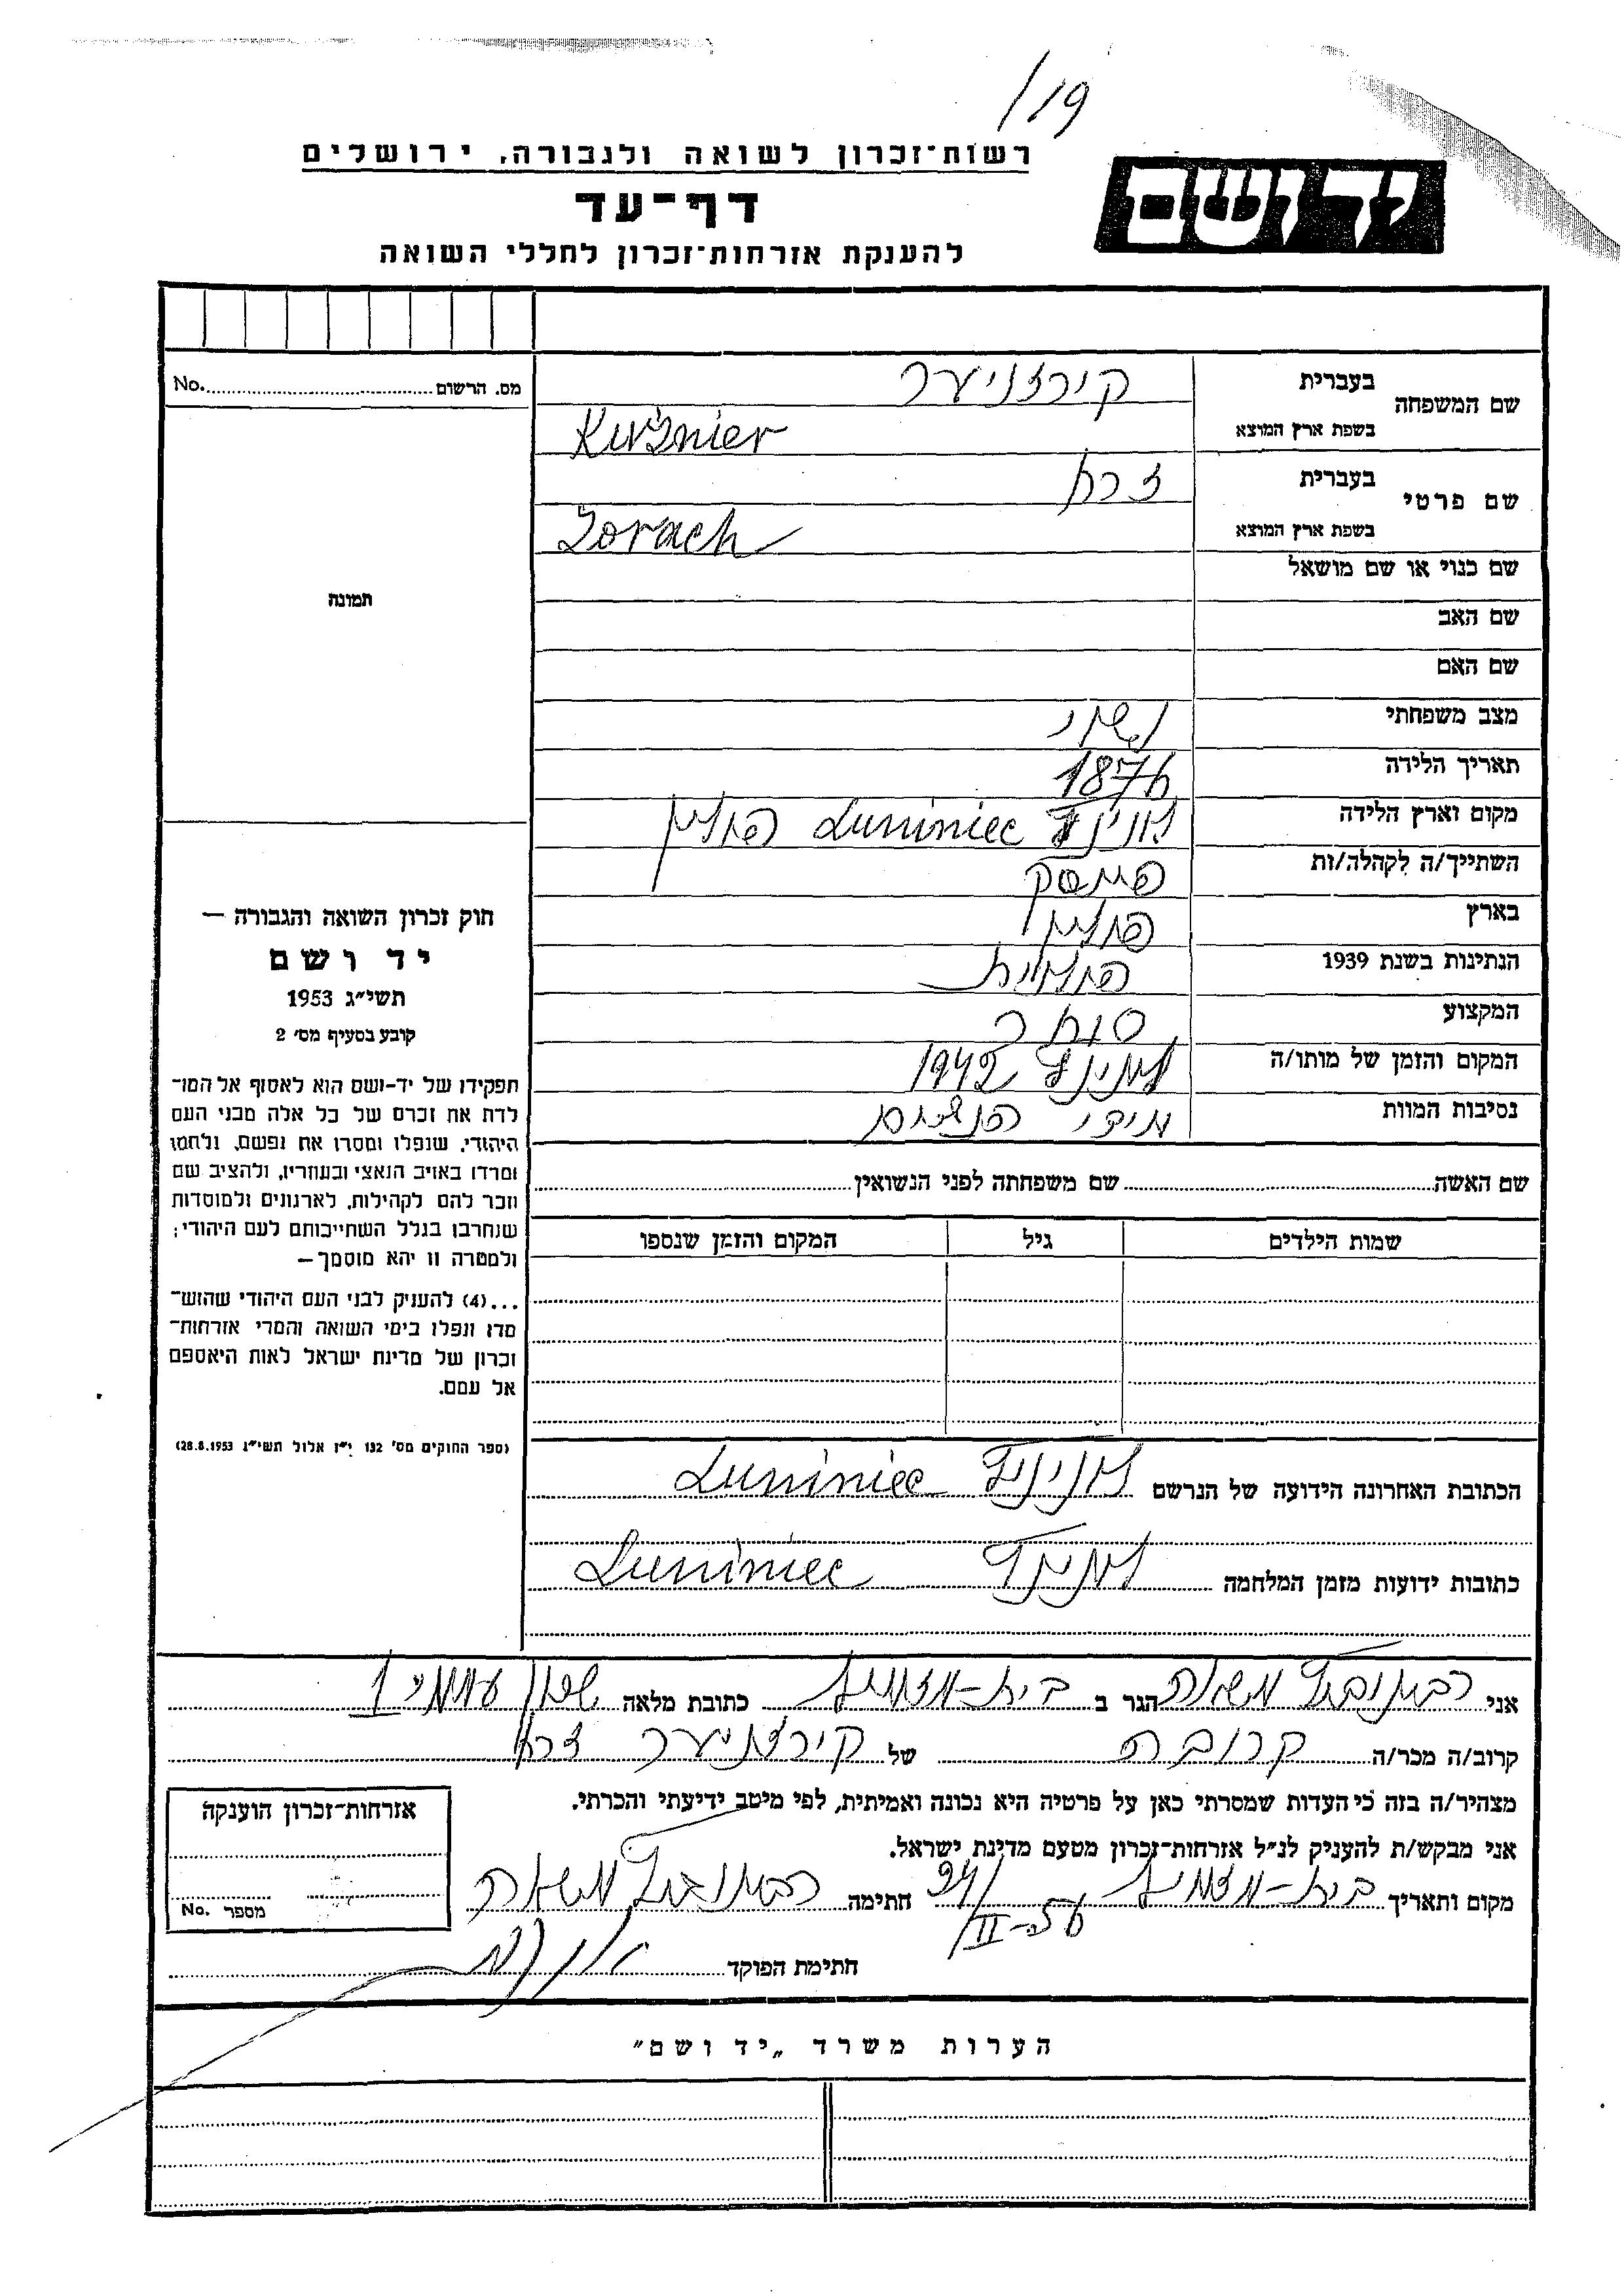 /19
רשות־זכרון לשואה ולגבורה, ירושלים
יד ושם
דף־עד
להענקת אזרחות־זכרון לחללי השואה
מס. הרשום No.
שם המשפחה
בעברית קירזניער
בשפת ארץ המוצא Kirżnier
שם פרטי
בעברית זרח
בשפת ארץ המוצא Zorach
תמונה
שם כנוי או שם מושאל
שם האב
שם האם
מצב משפחתי נשוי
תאריך הלידה 1876
מקום וארץ הלידה Luniniec פולין
השתייך/ה לקהלה/ות
בארץ פולין
הנתינות בשנת 1939 פולנית
המקצוע סוחר
המקום והזמן של מותו/ה 1942
נסיבות המוות
חוק זכרון השואה והגבורה —
יד ושם
תשי״ג 1953
קובע בסעיף מס׳ 2
תפקידו של יד-ושם הוא לאסוף אל המו־
לדת את זכרם של כל אלה מבני העם
היהודי, שנפלו ומסרו את נפשם, נלחמו
ומרדו באויב הנאצי ובעוזריו, ולהציב שם
וזכר להם לקהילות, לארגונים ולמוסדות
שנחרבו בגלל השתייכותם לעם היהודי;
ולמטרה זו יהא מוסמך —
...(4) להעניק לבני העם היהודי שהוש־
מדו ונפלו בימי השואה והמרי אזרחות־
זכרון של מדינת ישראל לאות היאספם
אל עמם.
(ספר החוקים מס׳ 132 י״ז אלול תשי״ג 28.8.1953)
שם האשה שם משפחתה לפני הנשואין
שמות הילדים גיל המקום והזמן שנספו
הכתובת האחרונה הידועה של הנרשם Luniniec
כתובות ידועות מזמן המלחמה Luniniec
אני הגר ב כתובת מלאה
קרוב/ה מכר/ה קרובה של קירזניער זרח
מצהיר/ה בזה כי העדות שמסרתי כאן על פרטיה היא נכונה ואמיתית, לפי מיטב ידיעתי והכרתי.
אני מבקש/ת להעניק לנ״ל אזרחות־זכרון מטעם מדינת ישראל.
מקום ותאריך חתימה
חתימת הפוקד
אזרחות־זכרון הוענקה
מספר No.
הערות משרד „יד ושם״